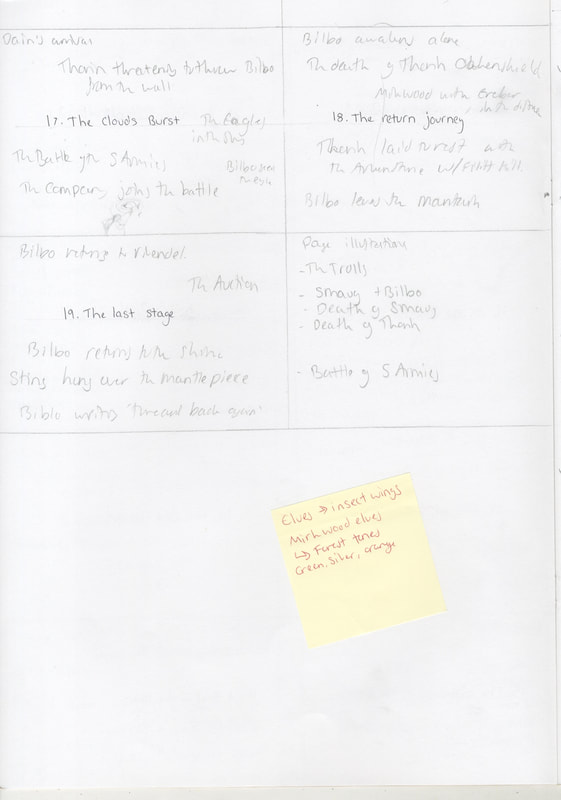 Dain's arrival
Thorin threatens to throw Bilbo
from the wall
17. The clouds Burst
The Eagles
in the sky
The Battle of the 5 Armies
Bilbo seen
The Company joins the battle
Bilbo awakens alone
The death of Thorin Oakenshield
Mirkwood with Erebor
in the distance
18. The return journey
Thorin laid to rest with
the Arkenstone w/
Bilbo leaves the
Bilbo returns to Rivendel.
The Auction
19. The last stage
Bilbo returns to the Shire
Sting hung over the mantlepiece
Biblo writes 'there and back again'
Page illustration
- The Trolls
- Smaug + Bilbo
- Death of Smaug
- Death of Thorin
- Battle of 5 Armies
Elves → insect wings
Mirkwood elves
↳ Forest tones
Green, silver, orange